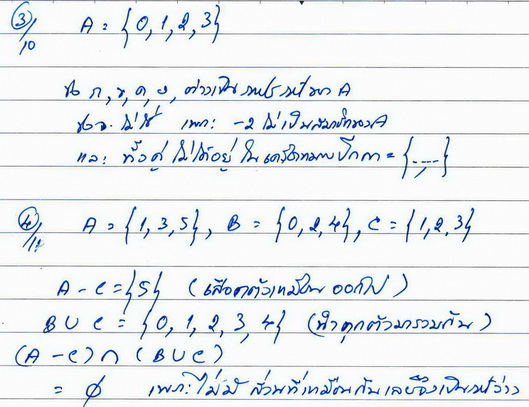 3/10 A = {0, 1, 2, 3}
ข้อ ก, ข, ค, ง, ต่างเป็น ของ A
ข้อ จ. ไม่ใช่ เพราะ -2 ไม่เป็นสมาชิกของA
และ ทั้งคู่ ไม่ได้อยู่ ใน เครื่องหมายปีกกา = {.....}
4/ A = {1, 3, 5}, B = {0, 2, 4}, C = {1, 2, 3}
A - C = {5} (เลือกตัวเหมือน ออกไป)
B ∪ C = {0, 1, 2, 3, 4} (นำทุกตัวมารวมกัน)
(A - C) ∩ (B ∪ C)
= ∅ เพราะ ไม่มี ส่วนที่เหมือนกัน เลยจึงเป็น ว่าง